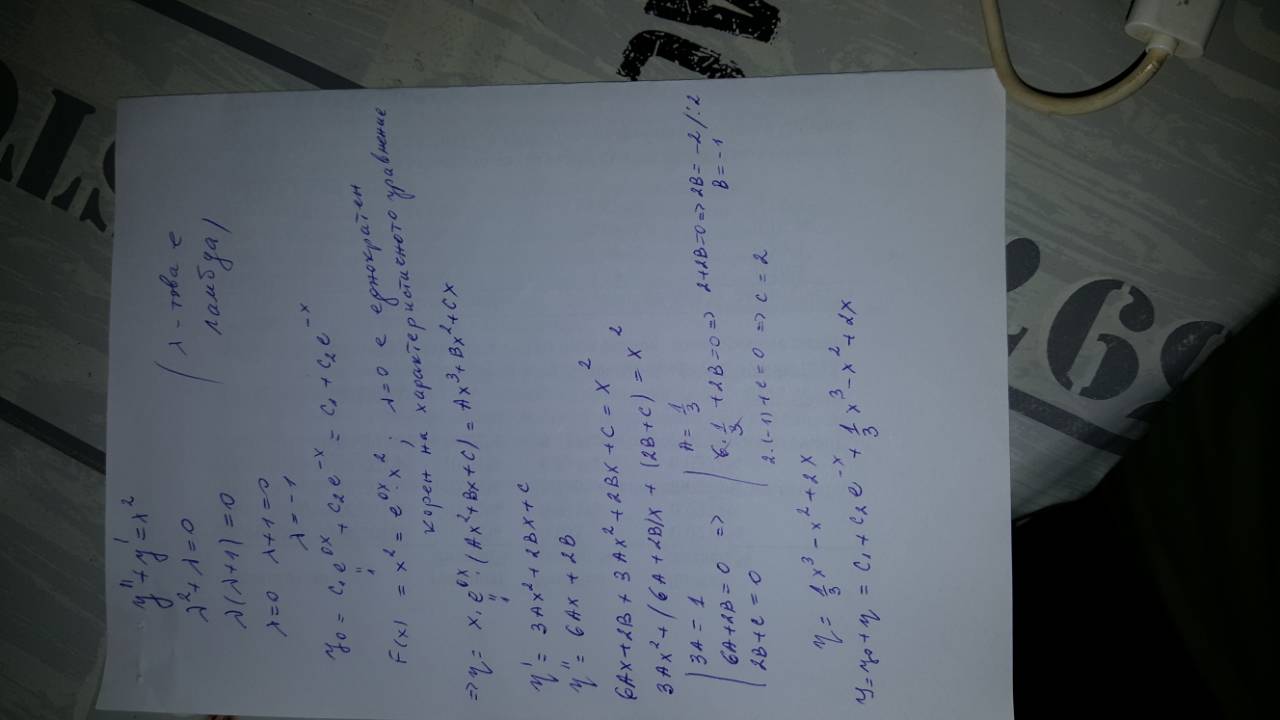 y'' + y' = x²
λ² + λ = 0
(λ - това е
ламбда)
λ(λ+1) = 0
λ=0 λ+1=0
λ = -1
y₀ = C₁e^0x + C₂e^-x = C₁ + C₂e^-x
"
1
F(x) = x² = e^0x . x² ; λ=0 е еднократен
корен на характеристичното уравнение
=> η = x . e^0x . (Ax²+Bx+C) = Ax³+Bx²+Cx
"
1
η' = 3Ax² + 2Bx + C
η'' = 6Ax + 2B
6Ax + 2B + 3Ax² + 2Bx + C = x²
3Ax² + (6A + 2B)x + (2B + C) = x²
| 3A = 1
| 6A + 2B = 0 =>
| 2B + C = 0
| A = 1/3
| 6 . 1/3 + 2B = 0 => 2+2B=0 => 2B = -2 /:2
B = -1
2.(-1) + C = 0 => C = 2
η = 1/3 x³ - x² + 2x
y = y₀ + η = C₁ + C₂e^-x + 1/3 x³ - x² + 2x